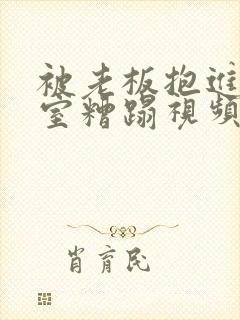 被老板抱进
室糟蹋视频
肖育民